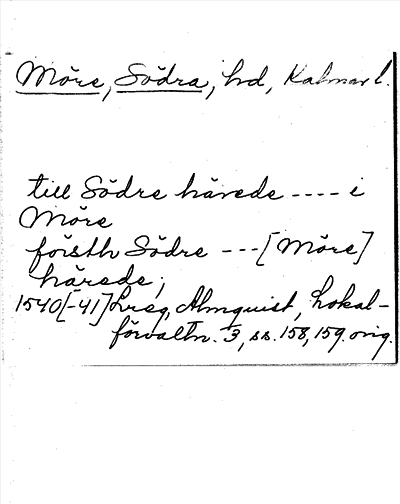 Möre, Södra, hd, Kalmar l.
till Södre härede ---- i
Möre
försth Södre --- [Möre]
härede;
1540[-41] Lreg, Almquist, Lokal-
förvaltn. 3, ss. 158, 159. orig.